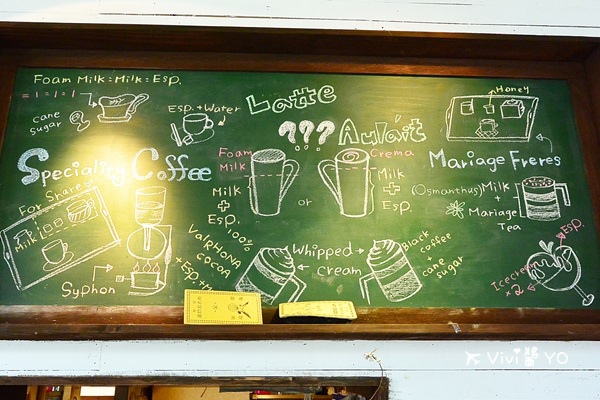 Foam Milk = Milk = Esp.
= 1 = 1 = 1
cane
sugar
Esp. + Water
Latte
???
Aulait
Honey
Speciality Coffee
Foam
Milk
Milk
+
Esp.
or
Crema
Milk
+
Esp.
Mariage Freres
(Osmanthus) Milk
+
Mariage
Tea
For Share
Milk
Syphon
100%
ValRHONA
cocoa
+ Esp.
Whipped
Cream
Black
coffee
+
cane
sugar
Esp.
Icecream
×2
Vivi醬 YO